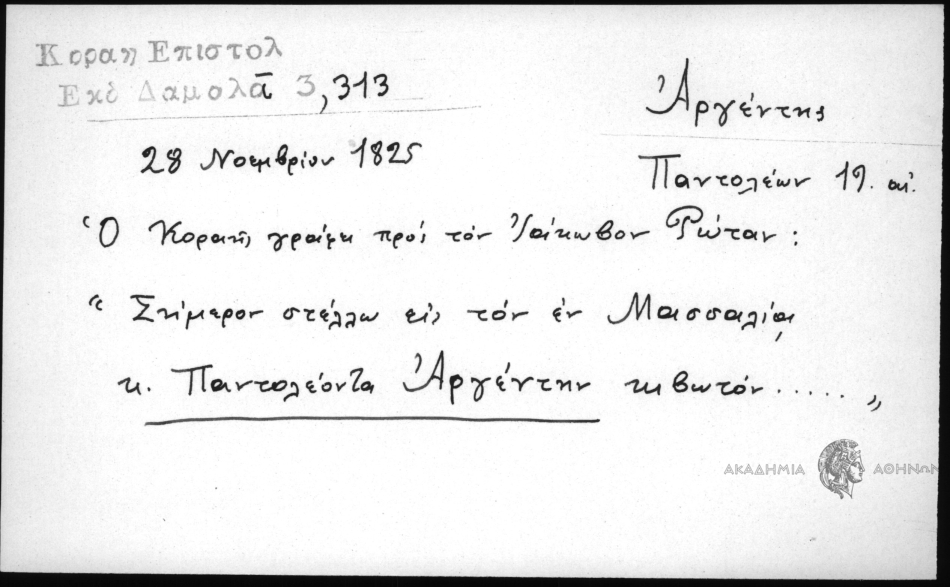 Κοραη Επιστολ
Εκδ Δαμολᾶ 3, 313
Ἀργέντης
28 Νοεμβρίου 1825
Παντολέων 19. αἰ.
Ὁ Κοραῆς γράφει πρὸς τὸν Ἰάκωβον Ρώταν:
“ Σήμερον στέλλω εἰς τὸν ἐν Μασσαλίᾳ
κ. Παντολέοντα Ἀργέντην κιβωτόν ..... „
ΑΚΑΔΗΜΙΑ ΑΘΗΝΩΝ